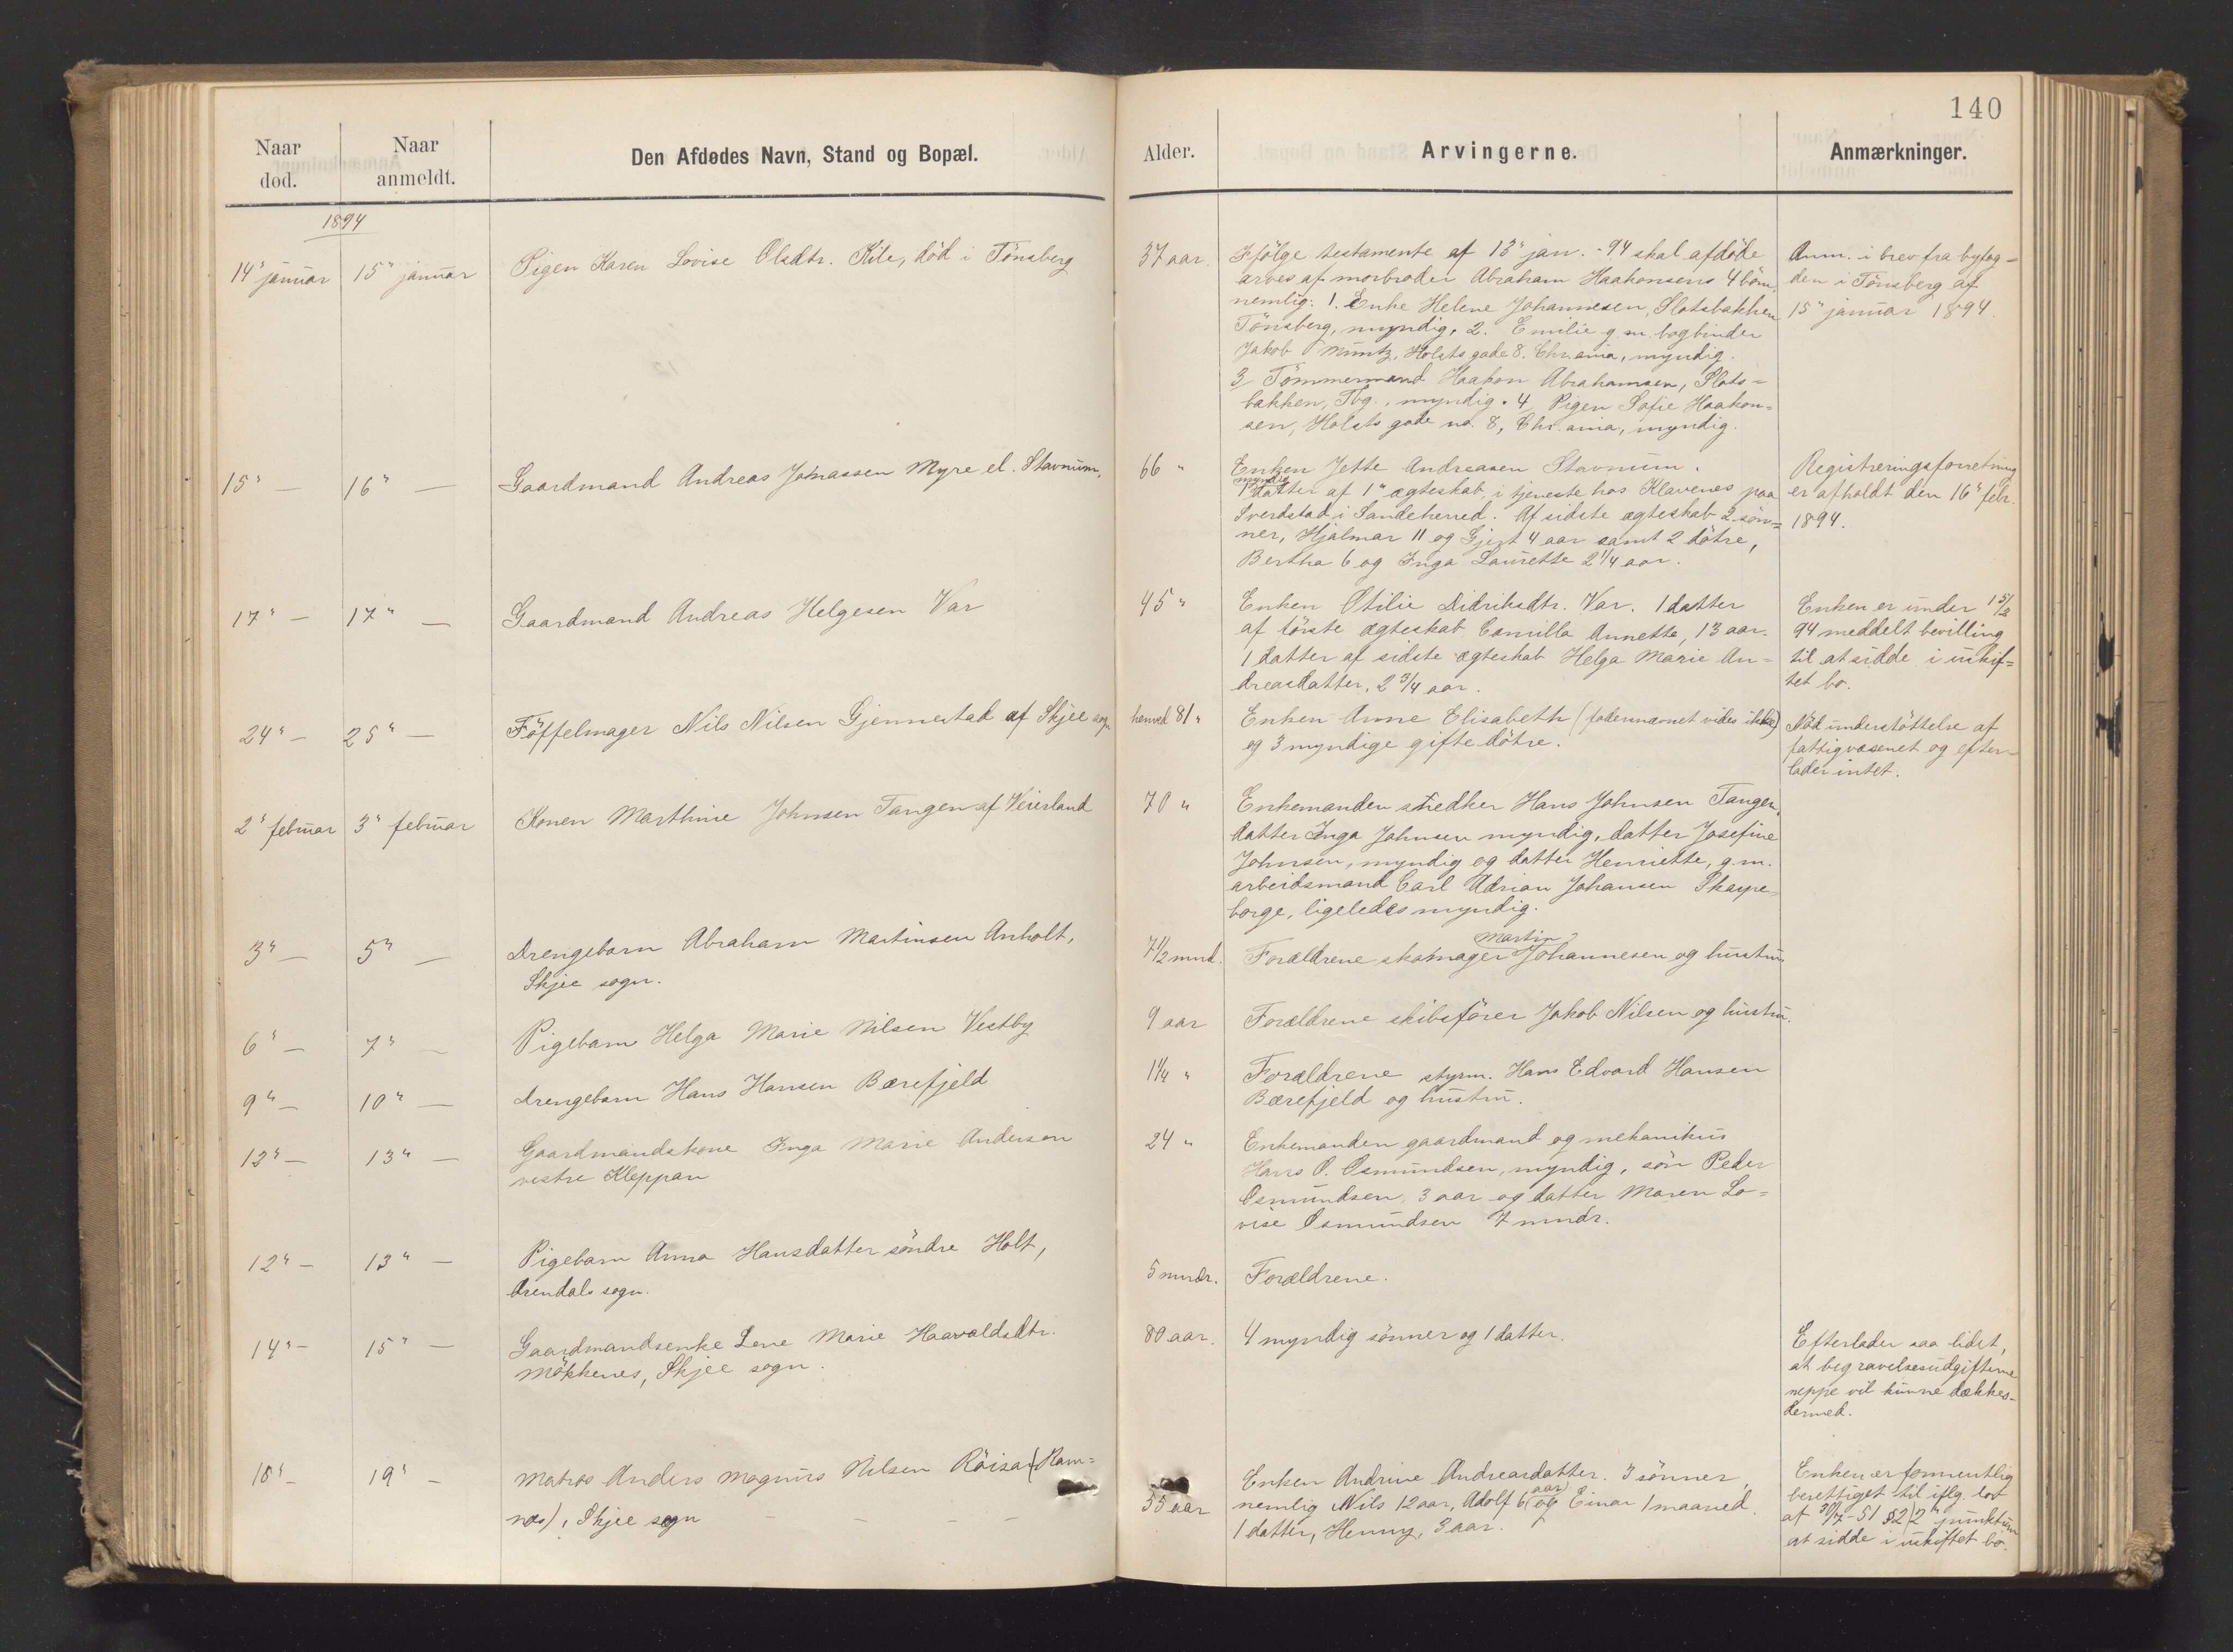 140
Naar død.
Naar anmeldt.
Den Afdødes Navn, Stand og Bopæl.
Alder.
Arvingerne.
Anmærkninger.
1894
14" januar
15" januar
Pigen Karen Lovise Olsdtr. Kile, död i Tönsberg
37 aar.
Ifölge testamente af 13" jan. -94 skal afdöde
arves af morbroder Abraham Haakonsens 4 börn,
nemlig: 1. Enke Helene Johannesen, Slotsbakken
Tönsberg, myndig, 2. Emilie g. m. bogbinder
Jakob Müntz, Holsts gade 8. Chr.ania, myndig.
3/ Tömmermand Haakon Abrahamsen, Slots=
bakken, Tbg., myndig. 4/ Pigen Sofie Haakon=
sen, Holsts gade no. 8, Chr.ania, myndig.
Anm. i brev fra byfog=
den i Tönsberg af
15" januar 1894.
15" —
16" —
Gaardmand Andreas Johnassen Myre el. Stavnum.
66 "
Enken Jette Andreasen Stavnum.
myndig
1 datter af 1" ægteskab, i tjeneste hos Klavenes paa
Sverdstad i Sandeherred. Af sidste ægteskab 2 sön=
ner, Hjalmar 11 og Gjert 4 aar samt 2 dötre,
Bertha 6 og Inga Laurette 2 1/4 aar.
Registreringsforretning
er afholdt den 16" febr.
1894.
17" —
17" —
Gaardmand Andreas Helgesen Var
45 "
Enken Otilie Didriksdtr. Var. 1 datter
af förste ægteskab Camilla Annette, 13 aar.
1 datter af sidste ægteskab Helga Marie An=
dreasdatter, 2 3/4 aar.
Enken er under 15/2
94 meddelt bevilling
til at sidde i uskif=
tet bo.
24" —
25" —
Töffelmager Nils Nilsen Gjennestad af Skjee sogn
henved 81 "
Enken Anne Elisabeth (fadernavnet vides ikke)
og 3 myndige gifte dötre.
Nöd understöttelse af
fattigvæsenet og efter=
lader intet.
2" februar
3" februar
Konen Marthine Johnsen Tangen af Veierland
70 "
Enkemanden snedker Hans Johnsen Tangen,
datter Inga Johnsen myndig, datter Josefine
Johnsen, myndig og datter Henriette, g. m.
arbeidsmand Carl Adrian Johansen Skarpe=
borge, ligeledes myndig.
3" —
5" —
Drengebarn Abraham Martinsen Anholt,
Skjee sogn.
7 1/2 mnd.
Martin
Forældrene skomager Johannesen og hustru
6" —
7" —
Pigebarn Helga Marie Nilsen Vestby
9 aar
Forældrene skibsförer Jakob Nilsen og hustru.
9" —
10" —
Drengebarn Hans Hansen Bærefjeld
1 1/4 "
Forældrene styrm. Hans Edvard Hansen
Bærefjeld og hustru.
12" —
13" —
Gaardmandskone Inga Marie Andersen
vestre Kleppan
24 "
Enkemanden gaardmand og mekanikus
Hans O. Osmundsen, myndig, sön Peder
Osmundsen, 3 aar og datter Maren Lo=
vise Osmundsen 7 mndr.
12" —
13" —
Pigebarn Anna Hansdatter söndre Holt,
Arendals sogn.
5 mndr.
Forældrene.
14" —
15" —
Gaardmandsenke Lene Marie Haavaldsdtr.
Mökkenes, Skjee sogn.
80 aar.
4 myndig sönner og 1 datter.
Efterlader saa lidet,
at begravelsesudgifterne
neppe vil kunne dækkes
dermed.
18" —
19" —
Matros Anders Magnus Nilsen Röisa (Ram=
næs), Skjee sogn — — — —
55 aar
Enken Andrine Andreasdatter. 3 sönner,
nemlig Nils 12 aar, Adolf 6 (aar) og Einar 1 maaned.
1 datter, Henny, 3 aar.
Enken er formentlig
berettiget til iflg. lov
af 30/7-51 § 2) 2" punktum
at sidde i uskiftet bo.